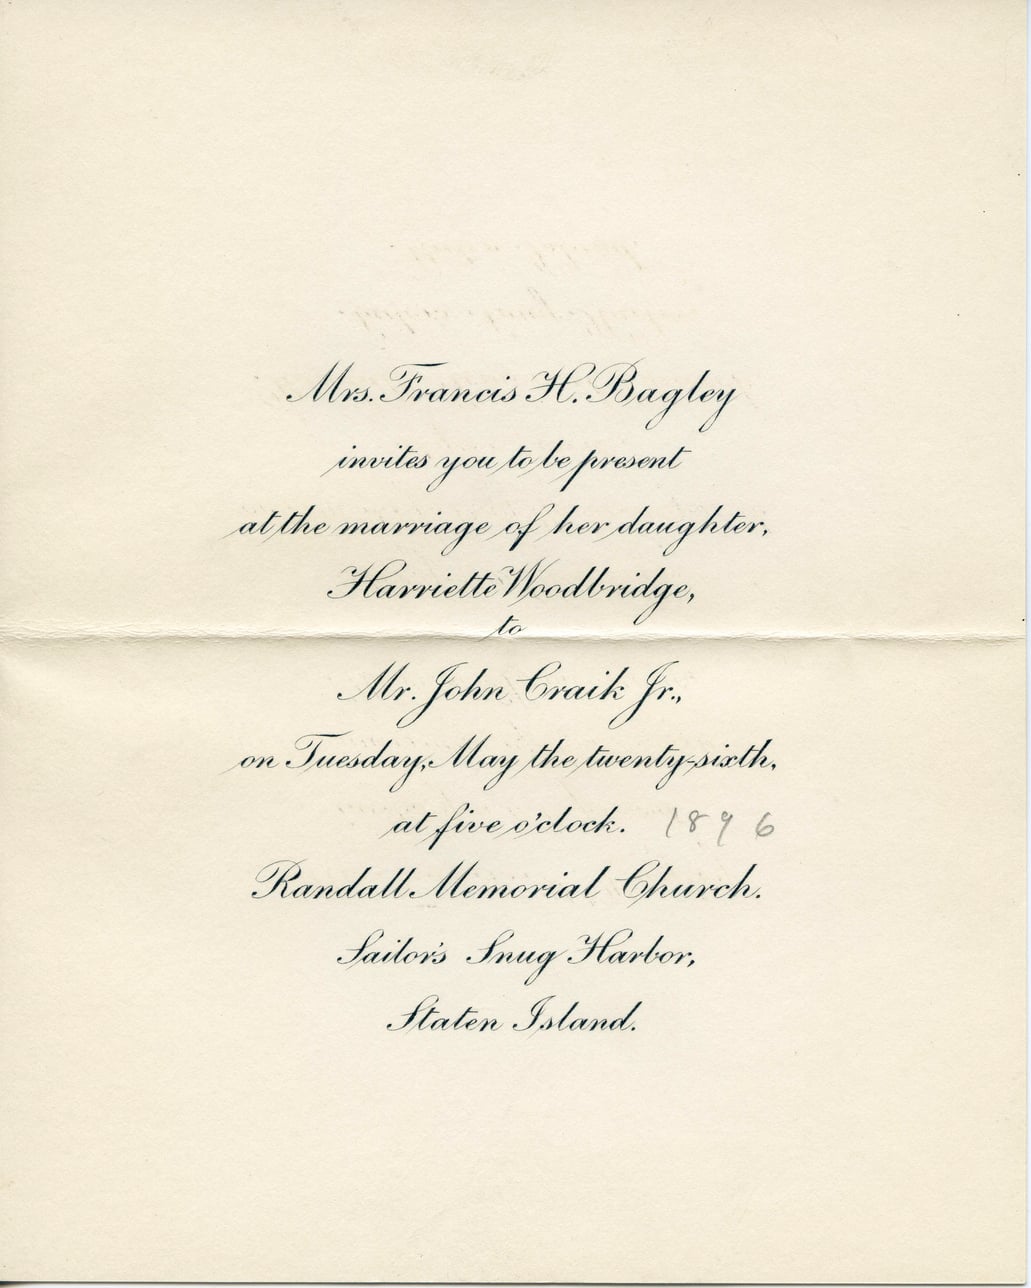 Mrs. Francis H. Bagley
invites you to be present
at the marriage of her daughter,
Harriette Woodbridge,
to
Mr. John Craik Jr.,
on Tuesday, May the twenty-sixth,
at five o'clock. 1896
Randall Memorial Church.
Sailor's Snug Harbor,
Staten Island.